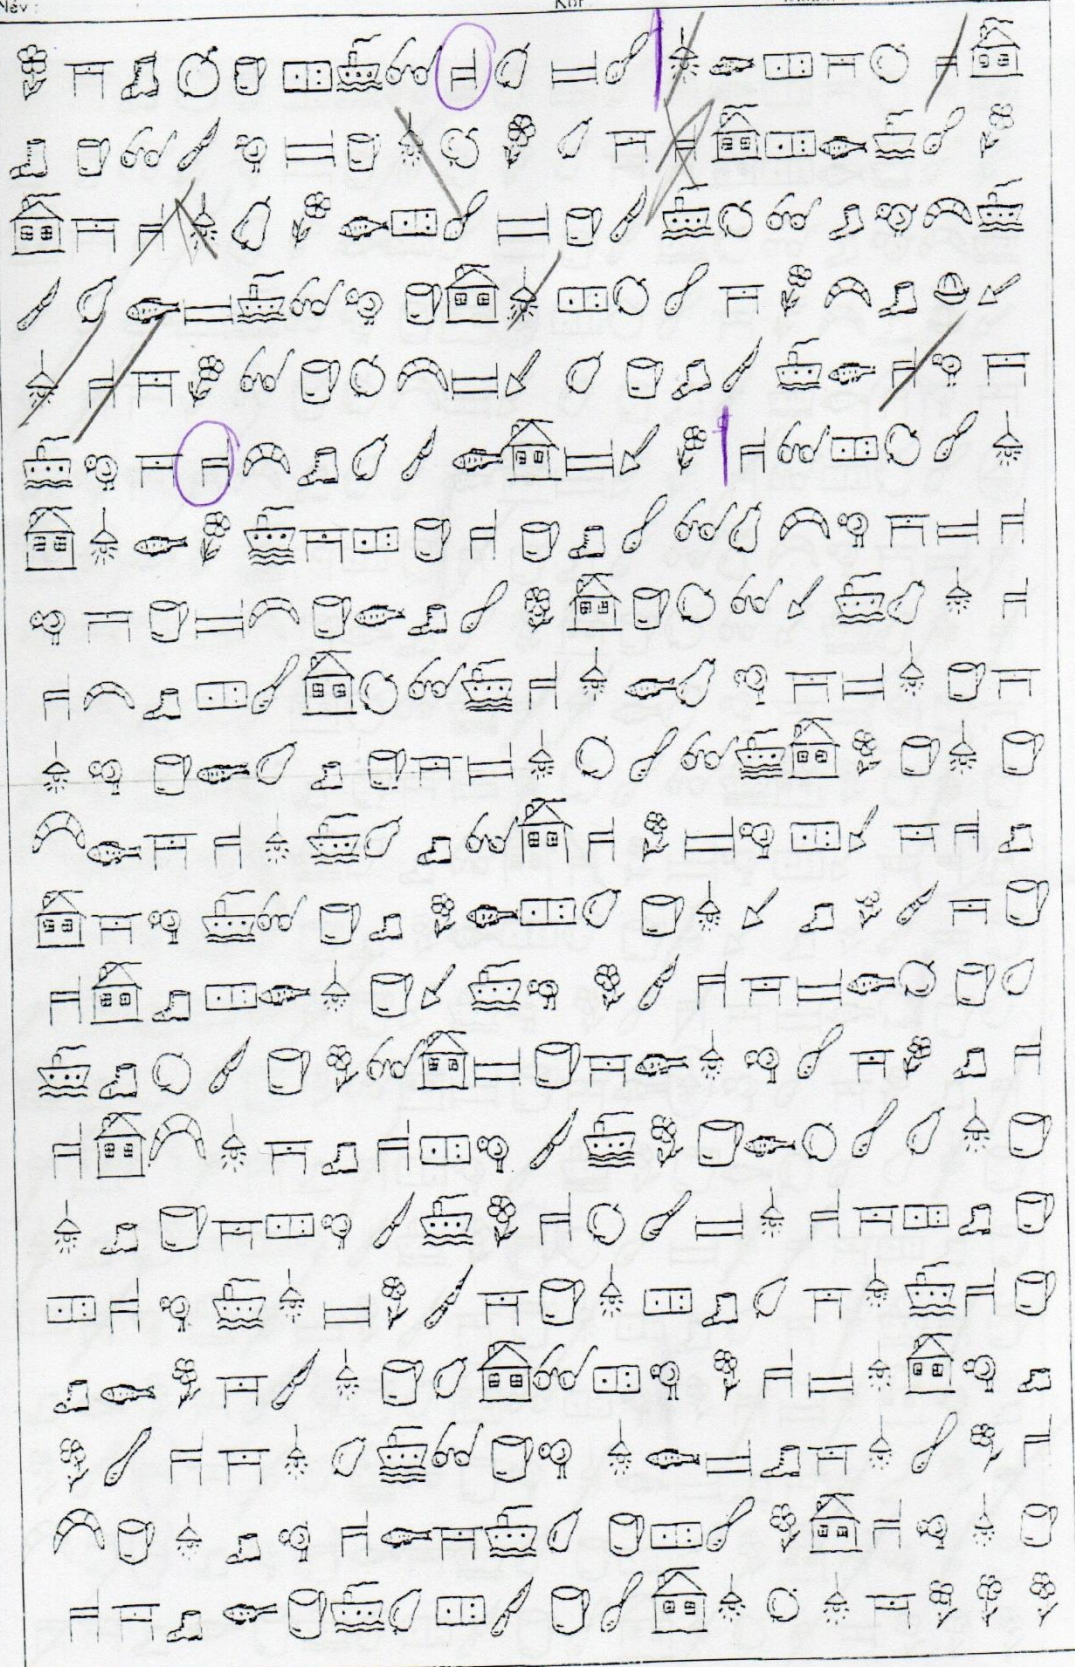 Név :
Kor